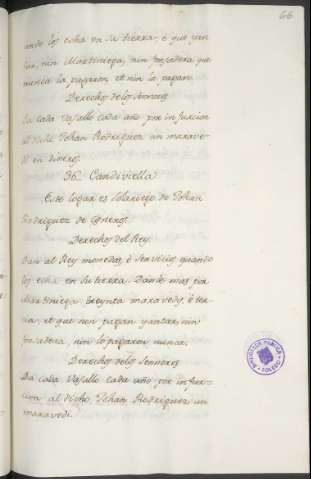 66
ando los echa en su tierra, é que yan
tar, nin Martiniega, nin fosadera que
nunca la pagaron et nin la pagan.
Derechos de los Sennores
Da cada Vasallo cada año por infurcion
al dicho Johan Rodriguez un marave-
di en dineros.
36. Candiviella
Este logar es Solariego de Johan
Rodriguez de Cisneros.
Derechos del Rey.
Dan al Rey monedas, é servicios quando
los echa en su tierra. Danle mas por
Martiniega treynta maravedis é ter-
cia, et que non pagan yantar, nin
fosadera, nin lo pagaron nunca.
Derechos de los Sennores
Da cada Vasallo cada año por infur-
cion al dicho Johan Rodriguez un
maravedi.
BIBLIOTECA PUBLICA
TOLEDO